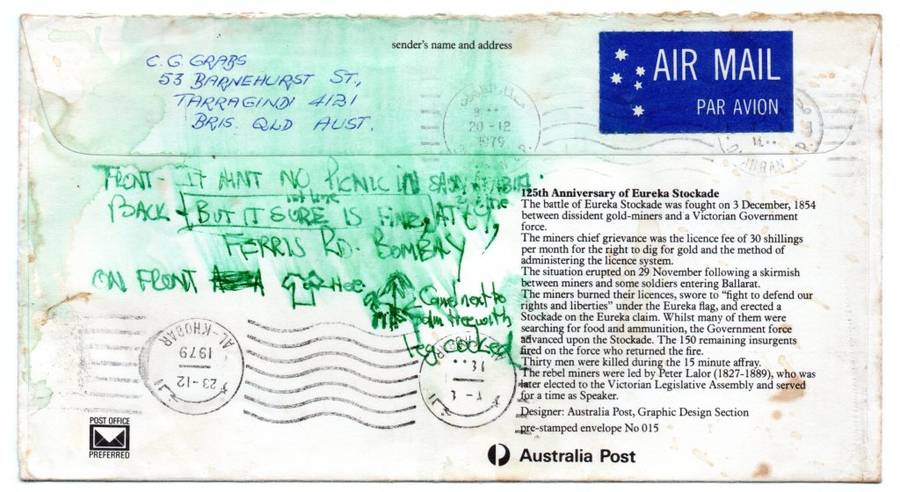 sender's name and address
C. G. GRABS
53 BARNEHURST ST.,
TARRAGINDI 4121
BRIS. QLD AUST.
AIR MAIL
PAR AVION
20-12
1979
DHAHRAN
FRONT - IT AINT NO PICNIC IN SAUDI ARABIA.
BACK - BUT IT SURE IS FINE, AT 69,
FERRIS RD. BOMBAY
ON FRONT A
Camel next to
palm tree with
leg cocked
125th Anniversary of Eureka Stockade
The battle of Eureka Stockade was fought on 3 December, 1854
between dissident gold-miners and a Victorian Government
force.
The miners chief grievance was the licence fee of 30 shillings
per month for the right to dig for gold and the method of
administering the licence system.
The situation erupted on 29 November following a skirmish
between miners and some soldiers entering Ballarat.
The miners burned their licences, swore to "fight to defend our
rights and liberties" under the Eureka flag, and erected a
Stockade on the Eureka claim. Whilst many of them were
searching for food and ammunition, the Government force
advanced upon the Stockade. The 150 remaining insurgents
fired on the force who returned the fire.
Thirty men were killed during the 15 minute affray.
The rebel miners were led by Peter Lalor (1827-1889), who was
later elected to the Victorian Legislative Assembly and served
for a time as Speaker.
Designer: Australia Post, Graphic Design Section
pre-stamped envelope No 015
AL-KHOBAR
1979
23-12
POST OFFICE
PREFERRED
Australia Post